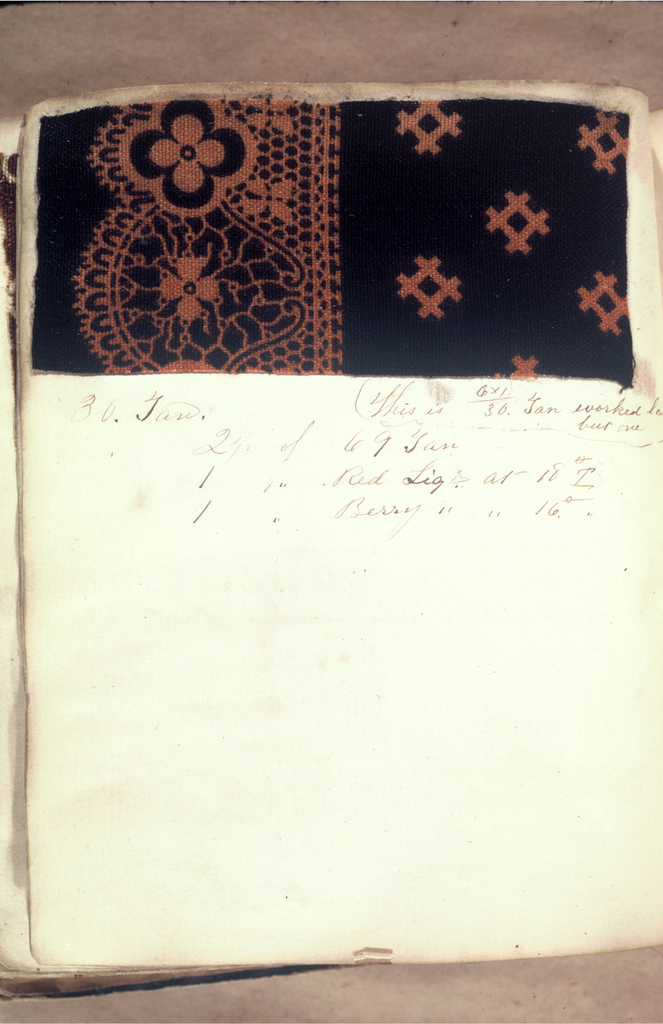 30. Tan. (This is 6x1/30. Tan worked
but one
2 p of 69 Tan
1 " Red Liqr. at 18° T
1 " Berry " " 16° "